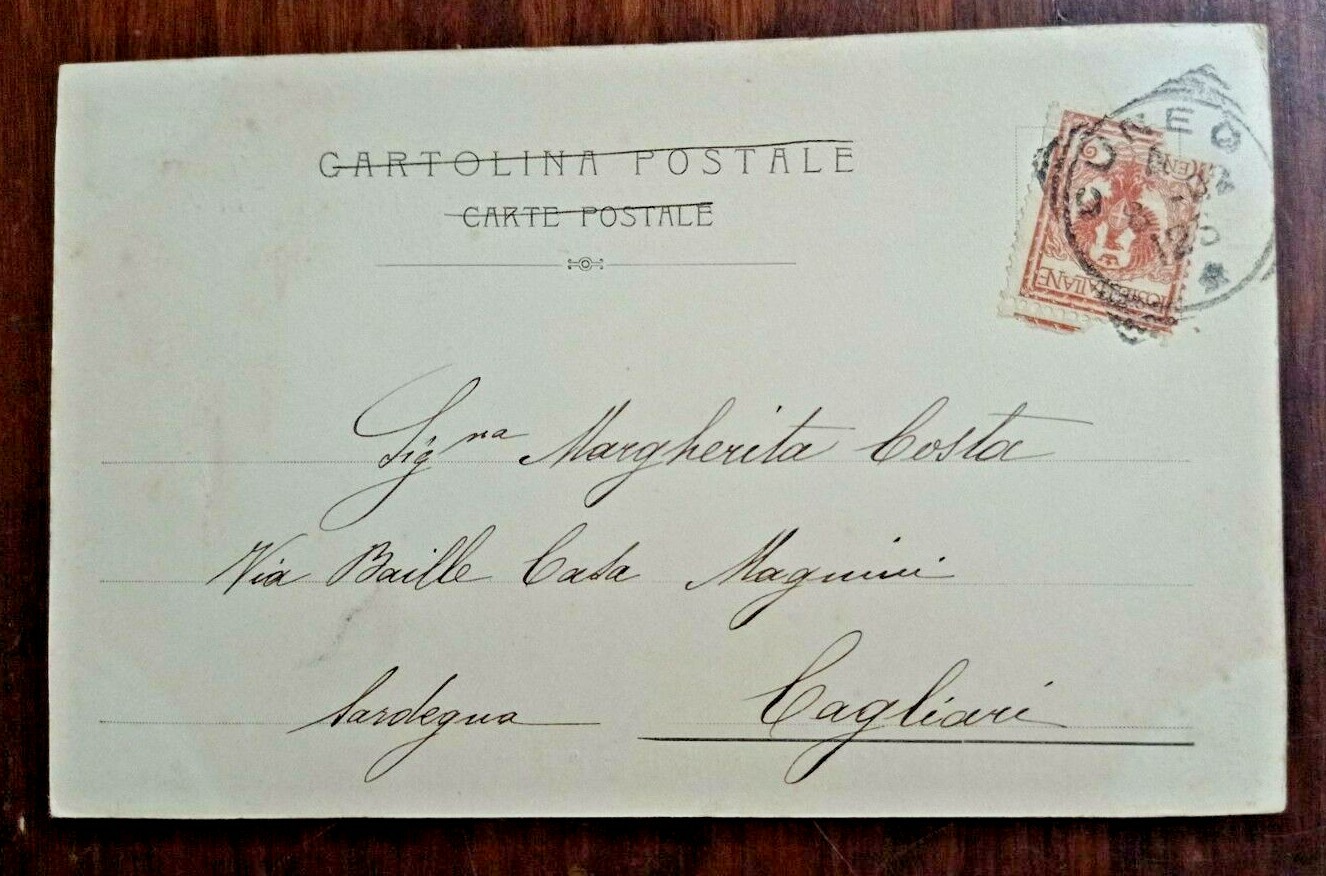 CARTOLINA POSTALE
CARTE POSTALE
CUNEO
POSTE ITALIANE
Signa Margherita Costa
Via Baille Casa Magnini
Sardegna Cagliari